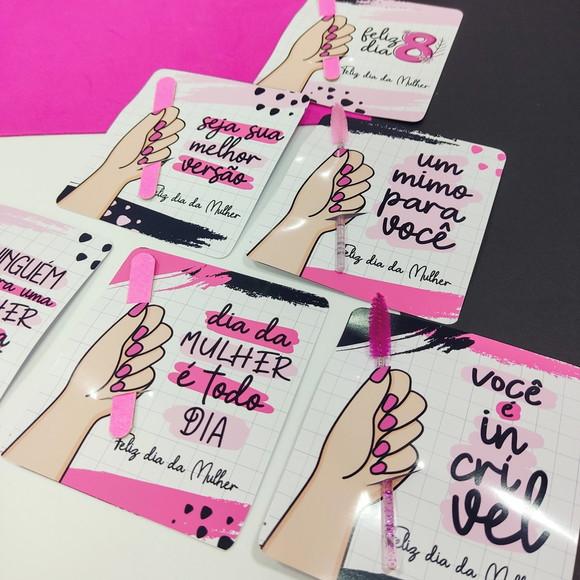 feliz
dia 8
Feliz dia da Mulher
seja sua
melhor
versão
Feliz dia da Mulher
um
mimo
para
você
Feliz dia da Mulher
uma
dia da
MULHER
é todo
DIA
Feliz dia da Mulher
você
é
in
crí
vel
Feliz dia da